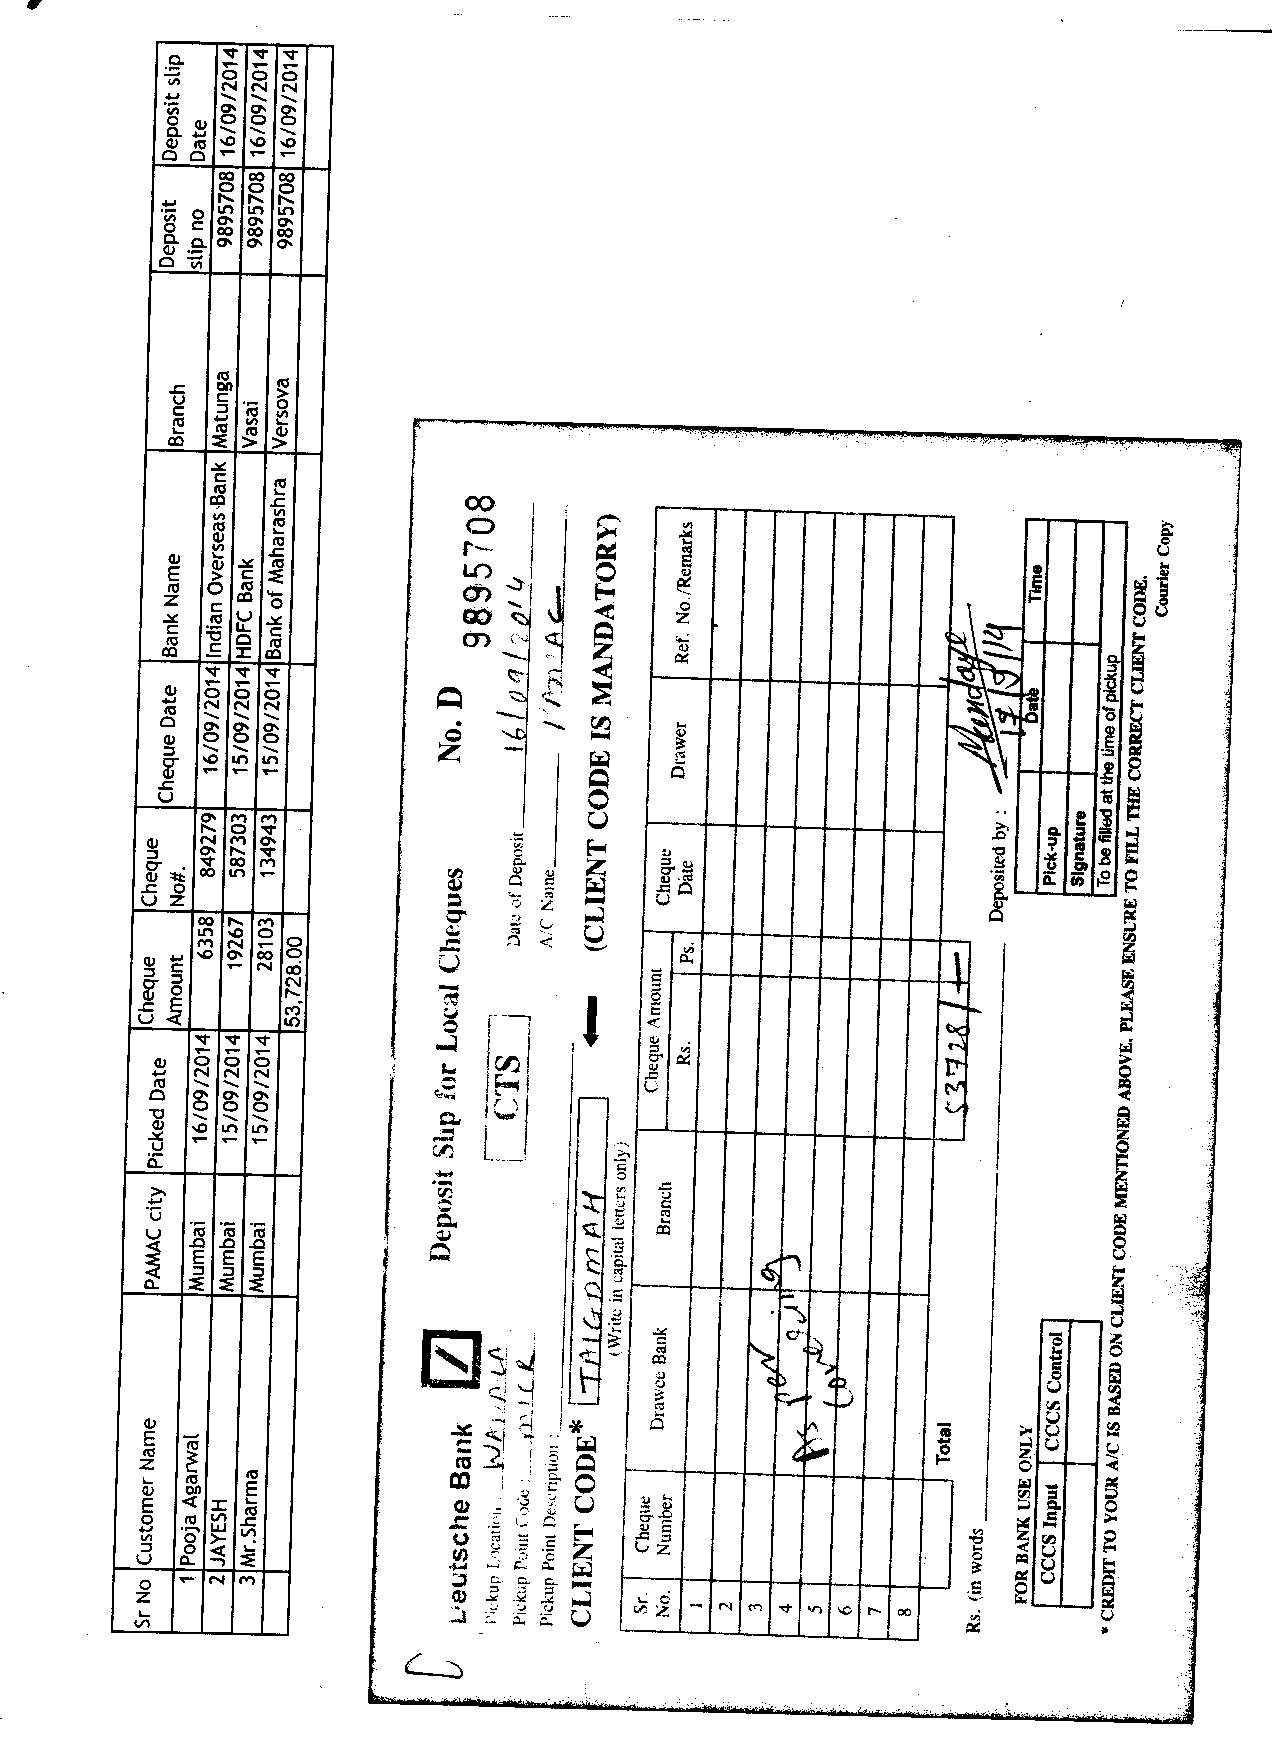 Sr No Customer Name PAMAC city Picked Date Cheque Amount Cheque No#. Cheque Date Bank Name Branch Deposit slip no Deposit slip Date
1 Pooja Agarwal Mumbai 16/09/2014 6358 849279 16/09/2014 Indian Overseas Bank Matunga 9895708 16/09/2014
2 JAYESH Mumbai 15/09/2014 19267 587303 15/09/2014 HDFC Bank Vasai 9895708 16/09/2014
3 Mr.Sharma Mumbai 15/09/2014 28103 134943 15/09/2014 Bank of Maharashra Versova 9895708 16/09/2014
53,728.00
Deutsche Bank Deposit Slip for Local Cheques No. D 9895708
Pickup Location WADALA CTS Date of Deposit 16/09/2014
Pickup Point Code : MICR A/C Name
Pickup Point Description :
CLIENT CODE* TAIGDMAH (CLIENT CODE IS MANDATORY)
(Write in capital letters only)
Sr. No. Cheque Number Drawee Bank Branch Cheque Amount Rs. Ps. Cheque Date Drawer Ref. No./Remarks
1
2
3
4 As per
5
6
7
8
Total 53728/-
Rs. (in words Deposited by :
17/9/14
FOR BANK USE ONLY
CCCS Input CCCS Control
Date Time
Pick-up
Signature
To be filled at the time of pickup
* CREDIT TO YOUR A/C IS BASED ON CLIENT CODE MENTIONED ABOVE, PLEASE ENSURE TO FILL THE CORRECT CLIENT CODE.
Courier Copy